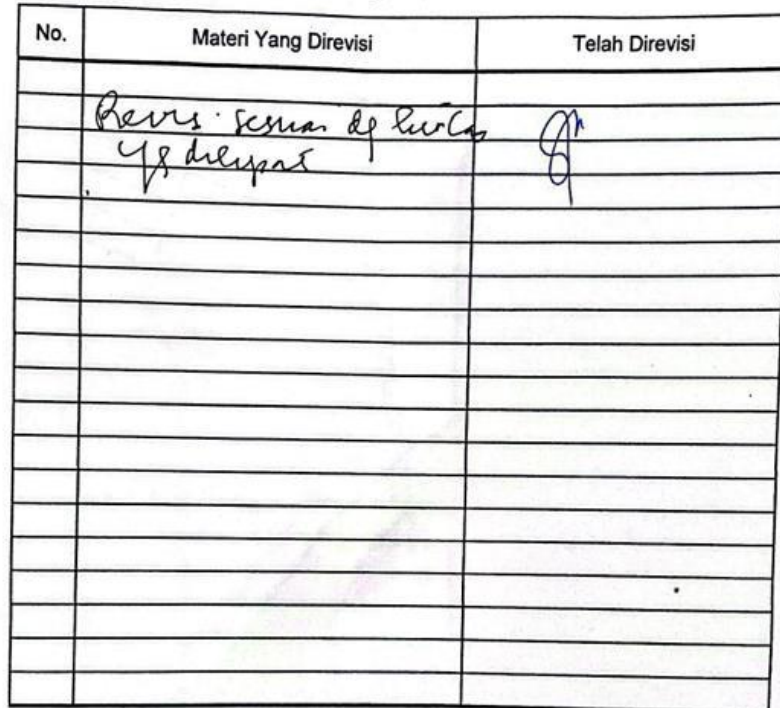 No. Materi Yang Direvisi Telah Direvisi
Revisi sesuai dg
yg